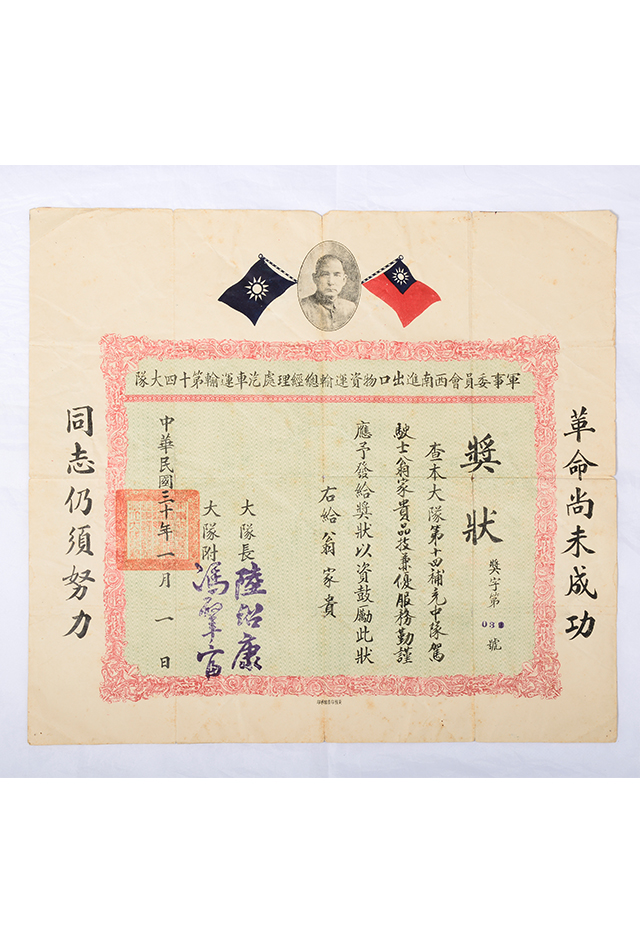 軍事委員會西南進出口物資運輸總經理處汽車運輸第十四大隊
革命尚未成功
獎狀
獎字第 號
查本大隊第十四補充中隊駕
駛士翁家貴品技兼優服務勤謹
應予發給獎狀以資鼓勵此狀
右給翁家貴
大隊長 陸紹康
大隊附 馮肇富
中華民國三十年一月一日
同志仍須努力